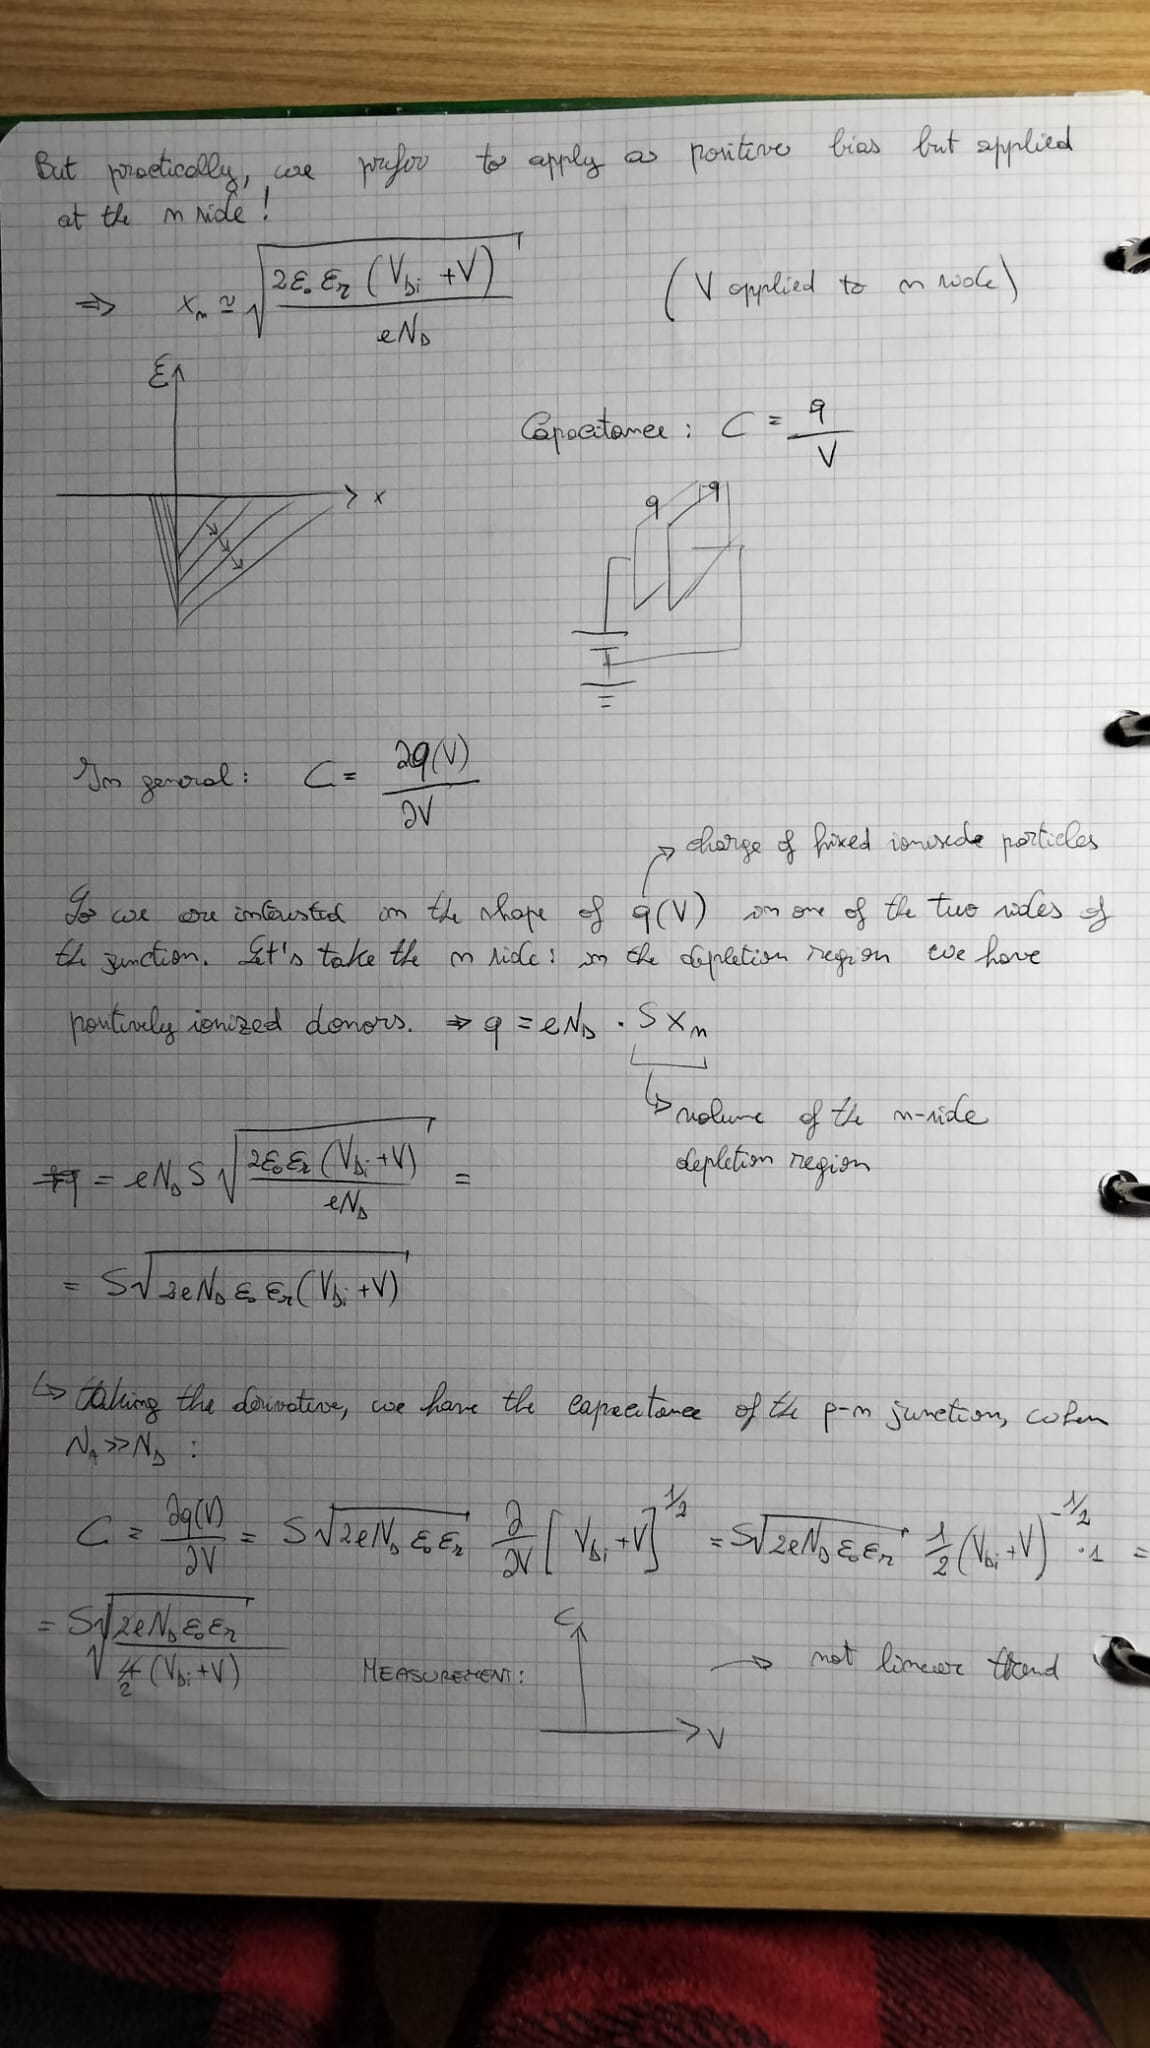 But practically, we prefer to apply a positive bias but applied
at the n side!
⇒ xₙ ≃ √(2ε₀ εᵣ (V_bi + V) / eN_D) (V applied to n side)
ℰ
Capacitance: C = q / V
x
q -q
In general: C = ∂q(V) / ∂V
→ charge of fixed ionised particles
So we are interested in the shape of q(V) in one of the two sides of
the junction. Let's take the n side: in the depletion region we have
positively ionized donors. ⇒ q = eN_D · S xₙ
↳ volume of the n-side
depletion region
q = eN_D S √(2ε₀ εᵣ (V_bi + V) / eN_D) =
= S √(2eN_D ε₀ εᵣ (V_bi + V))
↳ taking the derivative, we have the capacitance of the p-n junction, when
N_A >> N_D :
C = ∂q(V) / ∂V = S √(2eN_D ε₀ εᵣ) ∂/∂V [V_bi + V]^1/2 = S √(2eN_D ε₀ εᵣ) 1/2 (V_bi + V)^-1/2 · 1 =
= S √(2eN_D ε₀ εᵣ / 2 (V_bi + V))
MEASUREMENT: C → not linear trend
V